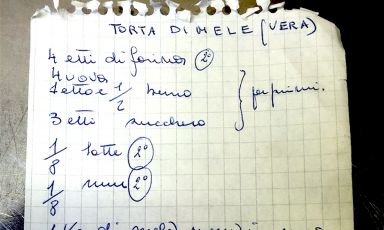 TORTA DI MELE (VERA)
4 etti di farina 2°
4 uova
1 etto e 1/2 burro
per primi.
3 etti zucchero
1/8 latte 2°
1/8 rum 2°
1 Kg di mele